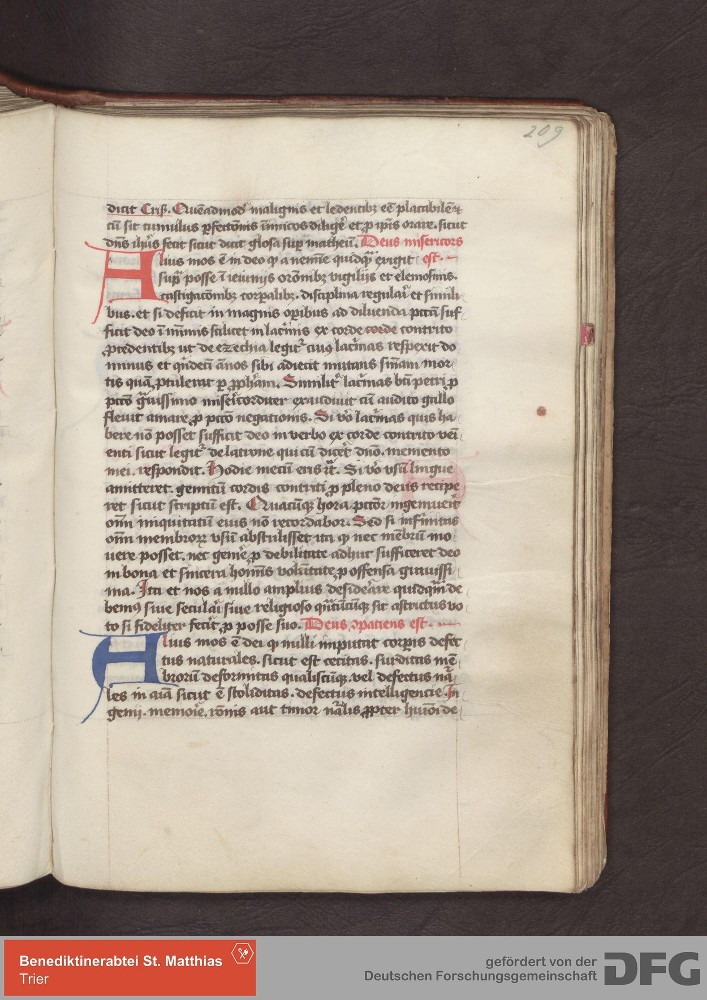 209
dicit Cris. Quēadmod' malignis et ledentibz eē placabilē et
cū sit cumulus pfectionis inimicos diligē et p ipis orare. sicut
dn̄s ihūs fecit sicut dicit glosa sup matheū. Deus misericors
Alius mos ē in deo q a nemīe quidq̄ exigit est.
supᵃ posse ī ieiunijs orōnibz vigilijs et elemosinis.
castigatōnibz corpalibz. disciplina regulari et simili
bus. et si deficit in magnis opibus ad diluenda pctā suf
ficit deo ī minimis scilicet in lacrimis ex corde corde contrito
pcedentibz ut de ezechia legitᷣ cuiꝰ lacrimas respexit do
minus et qⁱndeci ānos sibi adiecit mutans sniam mor
tis quā ptulerat p pphām. Similitᷣ lacrimas bti petri p
pctō gᵃuissimo misericorditer exaudiuit cū audito gallo
fleuit amare p pctō negationis. Si vo lacrimas quis ha
bere nō posset sufficit deo in verbo ex corde contrito veni
enti sicut legitᷣ de latrone qui cū dicēt dn̄o. memento
mei. respondit. Hodie mecū eris rt. Si vo vsū lingue
amitteret. gemitū cordis contriti p pleno deus recipe
ret sicut scriptū est. Quacūq hora pctor ingemuerit
oīm iniquitatū eius nō recordabor. Sed si infirmitas
oīm membrorꝝ vsū abstulisset ita q nec mēbrū mo
uere posset. nec gemē p debilitate adhuc sufficeret deo
in bona et sincera hominis volūtate p offensa grauissi
ma. Ita et nos a nullo amplius desiderare quidqᵃm de
bemꝰ siue seculari siue religioso qᵃntūcūq sit astrictus vo
to si fideliter fecit p posse suo. Deus cpatiens est.
Alius mos ē dei q nulli imputat corpis defec
tus naturales. sicut est cecitas. surditas mē
brorū deformitas qualiscūq. vel defectus nā
les in aīa sicut ē stoliditas. defectus intelligencie. In
genij. memorie. rōnis aut timor nāl̄is ppter
Benediktinerabtei St. Matthias
Trier
gefördert von der
Deutschen Forschungsgemeinschaft
DFG